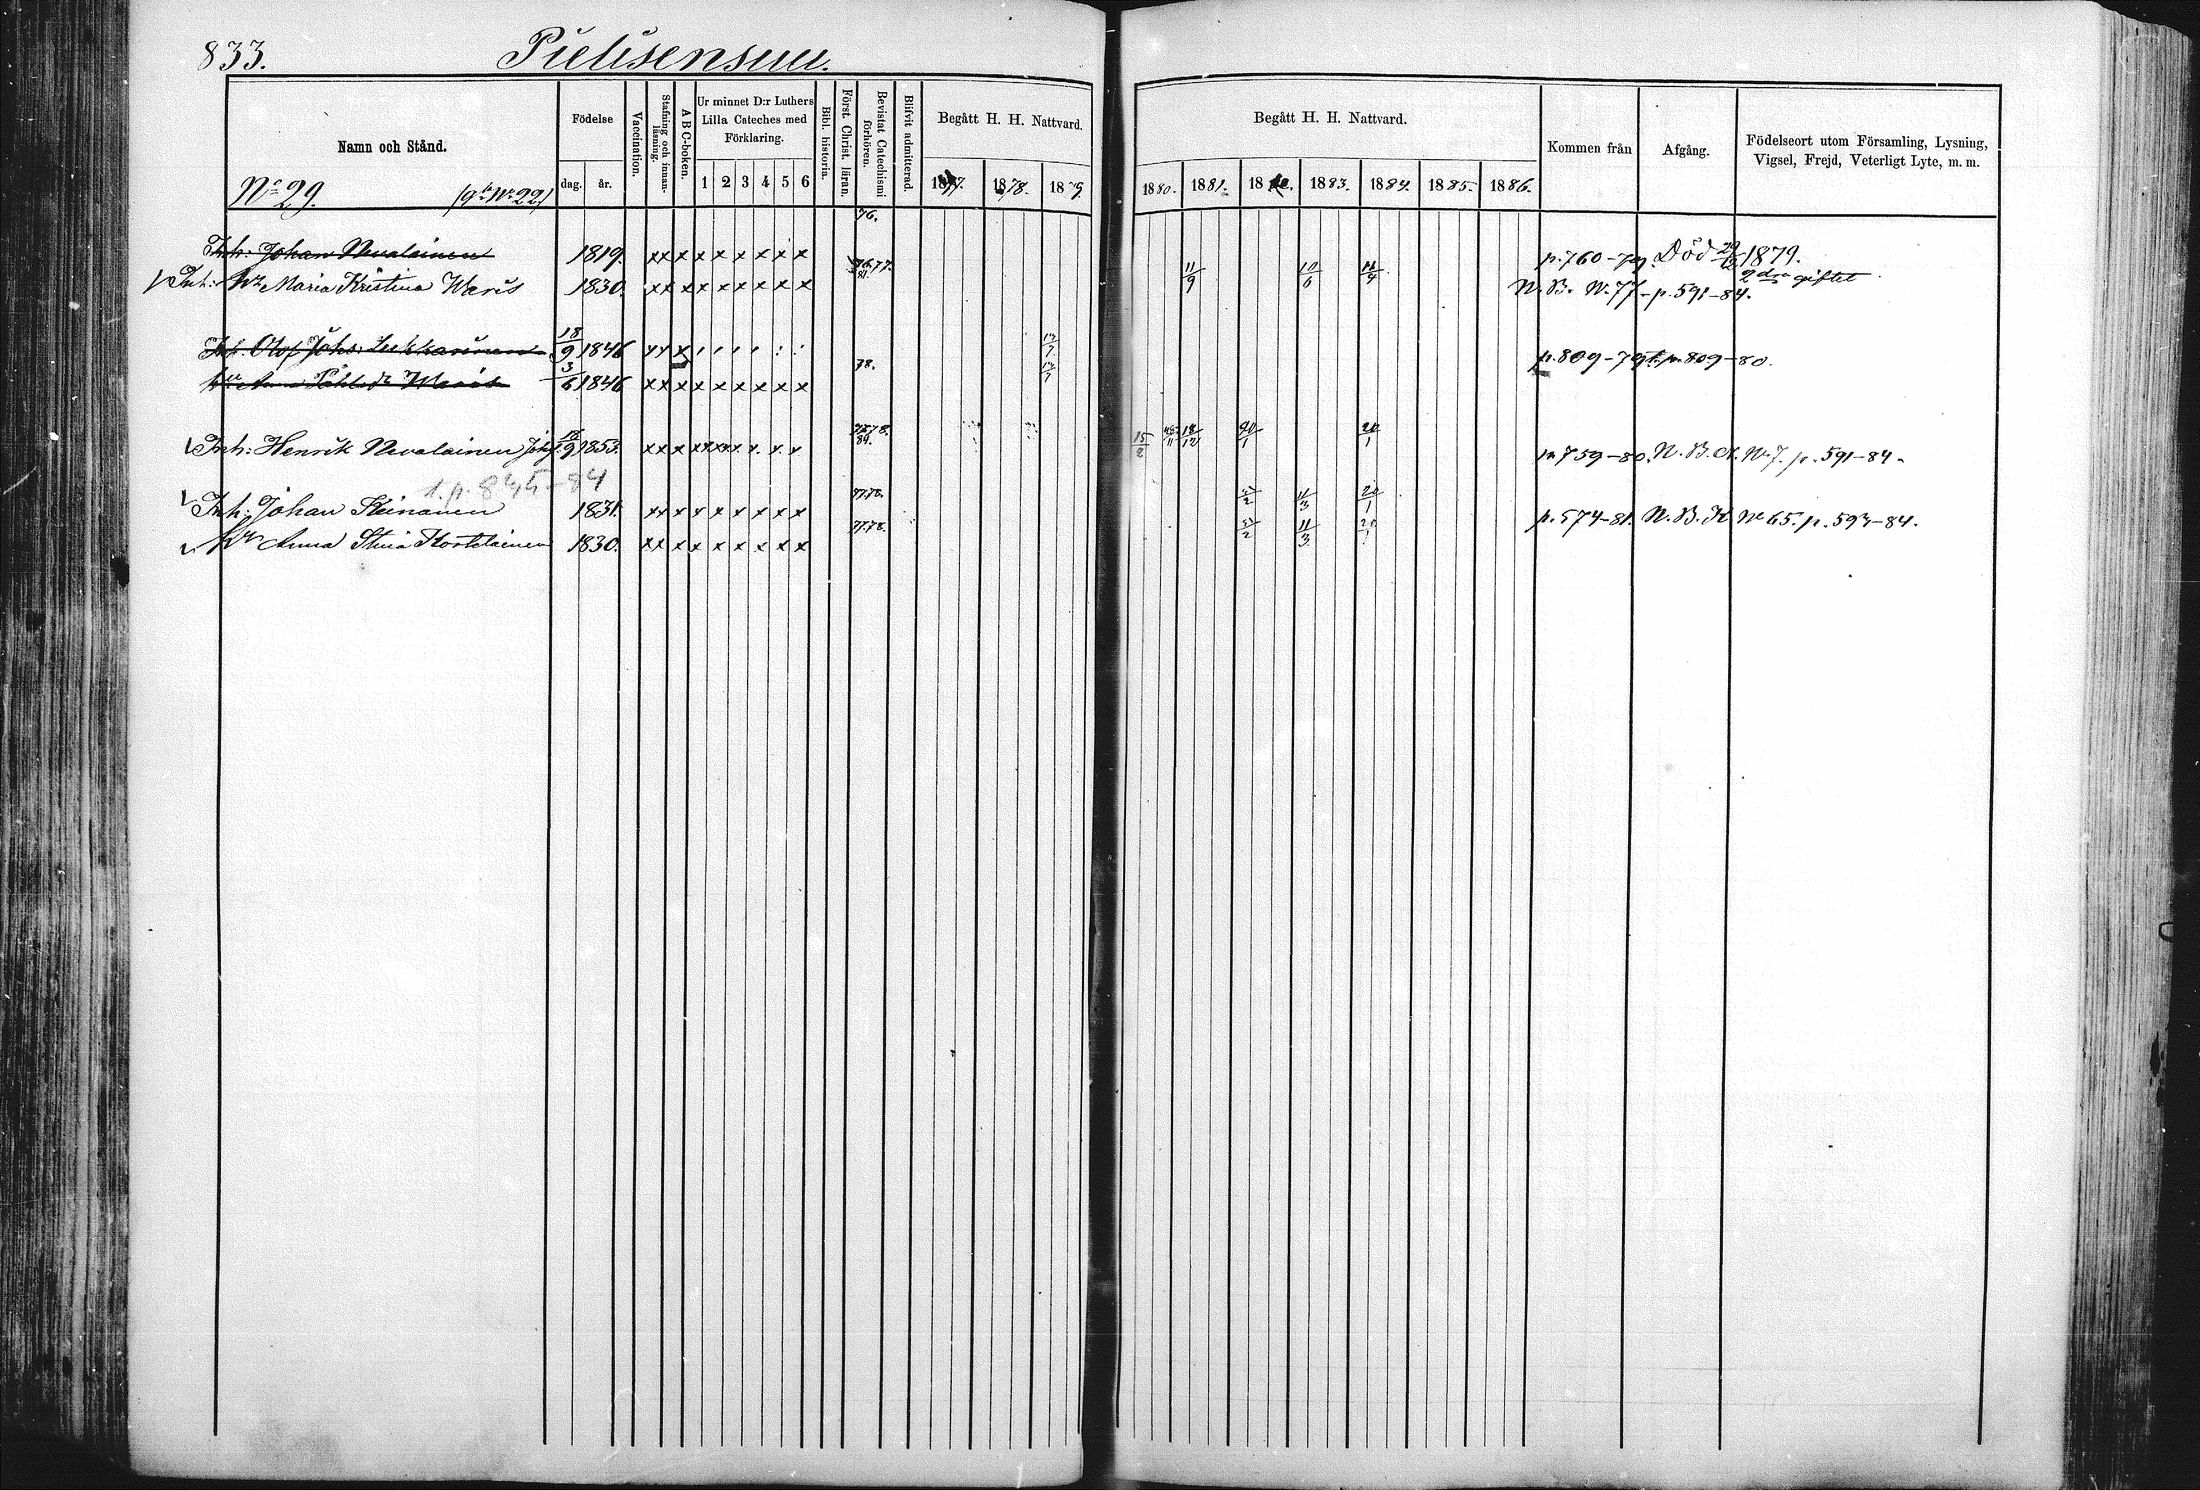 833. Pielisensuu.
Namn och Stånd.
Födelse
dag. år.
Vaccination.
Stafning och innan-läsning.
A B C-boken.
Ur minnet D:r Luthers Lilla Cateches med Förklaring.
1 2 3 4 5 6
Bibl. historia.
Först. Christ. läran.
Bevistat Catechismi förhören.
Blifvit admitterad.
Begått H. H. Nattvard.
1877. 1878. 1879
Begått H. H. Nattvard.
1880. 1881. 1882. 1883. 1884. 1885. 1886.
Kommen från
Afgång.
Födelseort utom Församling, Lysning, Vigsel, Frejd, Veterligt Lyte, m. m.
No 29. No 22)
76.
Inh: Johan Nevalainen 1819. x x x x x x x x x p. 760-79. Död 29/12 1879.
Inh: Maria Kristina Waris 1830. x x x x x x x x x 76.77. 81 11/9 10/6 11/4 N. B. N. 77 - p. 591-84. 2dra giftet
Inh. Olof Johs. Lukkarinen 18/9 1846 x x x p. 809-79 t. p. 809-80.
Anna Waris 3/6 1846 x x x x x x x x x 78.
Inh: Henrik Nevalainen Johs. 9 1853. x x x x x x x x x 15/2 18/12 20/1 20/1 p. 759-80. N. B. A. No 7. p. 591-84.
t. p. 845-84
Inh: Johan Keinänen 1831. x x x x x x x x x 77.78. 11/3 20/1 p. 574-81. N. B. K. No 65. p. 593-84.
Anna Stina Kostelainen 1830. x x x x x x x x x 77.78. 11/3